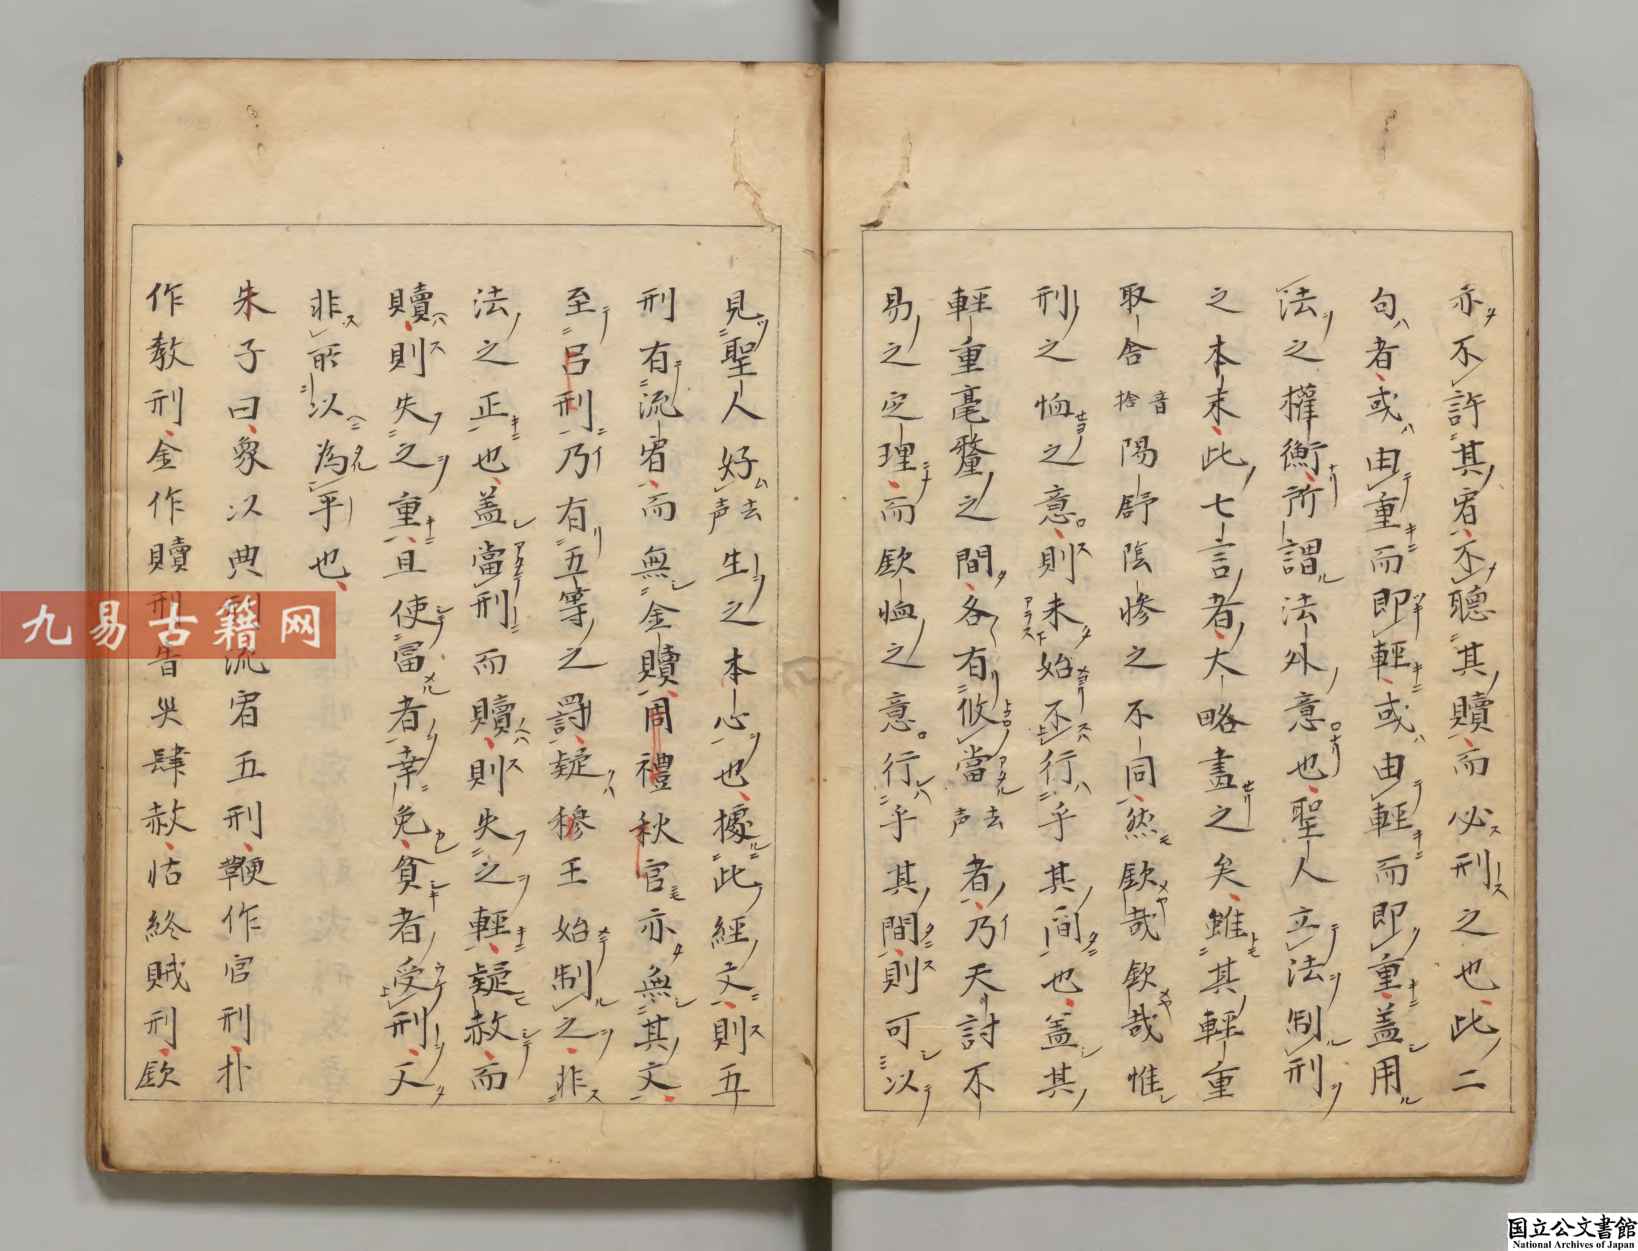 亦不許其宥不聽其贖而必刑之也此二
句者或由重而即輕或由輕而即重蓋用
法之權衡所謂法外意也聖人立法制刑
之本末此七言者大略盡之矣雖其輕重
取舍音捨陽舒陰慘之不同然欽哉欽哉惟
刑之恤之意則未始不行乎其間也盖其
輕重毫釐之間各有攸當去声者乃天討不
易之定理而欽恤之意行乎其間則可以
見聖人好去声生之本心也據此經文則五
刑有流宥而無金贖周禮秋官亦無其文
至呂刑乃有五等之罰疑穆王始制之非
法之正也盖當刑而贖則失之輕疑赦而
贖則失之重且使富者幸免貧者受刑又
非所以為平也
朱子曰象以典刑流宥五刑鞭作官刑朴
作教刑金作贖刑眚災肆赦怙終賊刑欽
九易古籍网
国立公文書館
National Archives of Japan